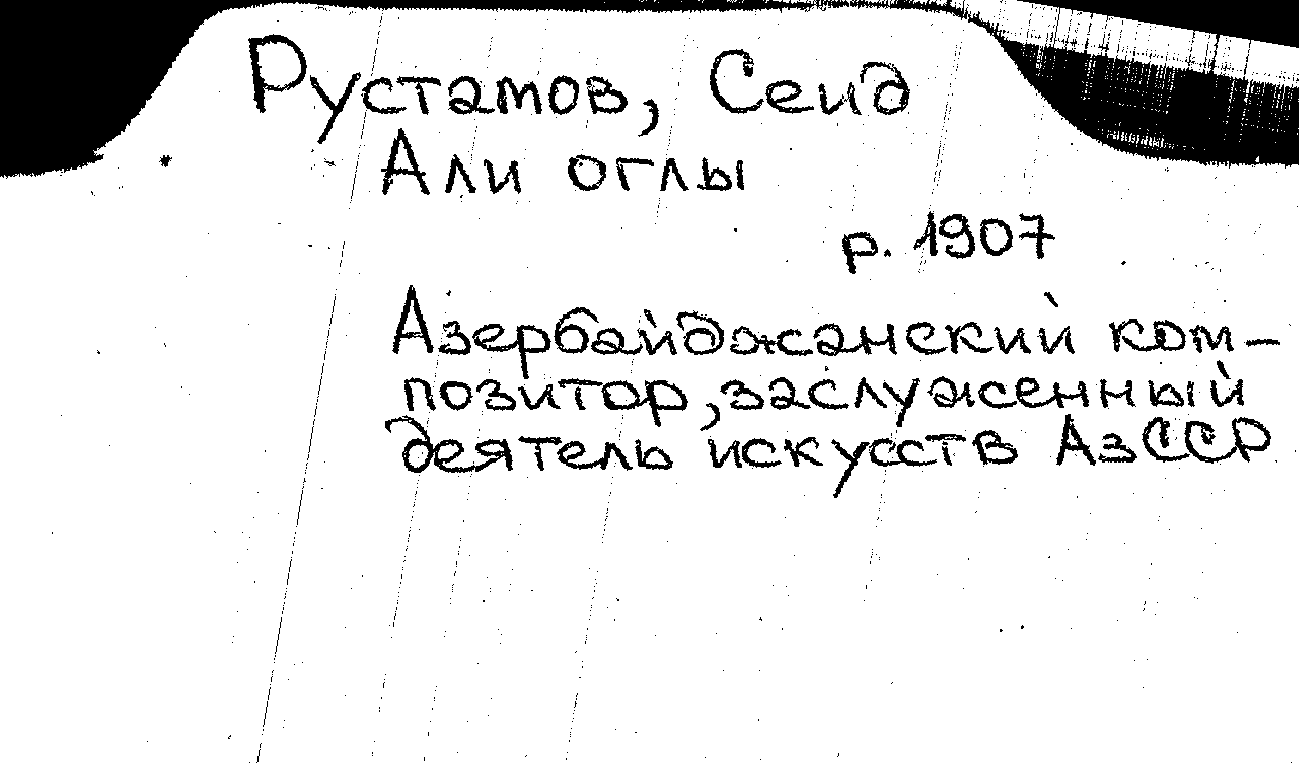 Рустамов, Сеид
Али оглы
р. 1907
Азербайджанский ком-
позитор, заслуженный
деятель искусств АзССР